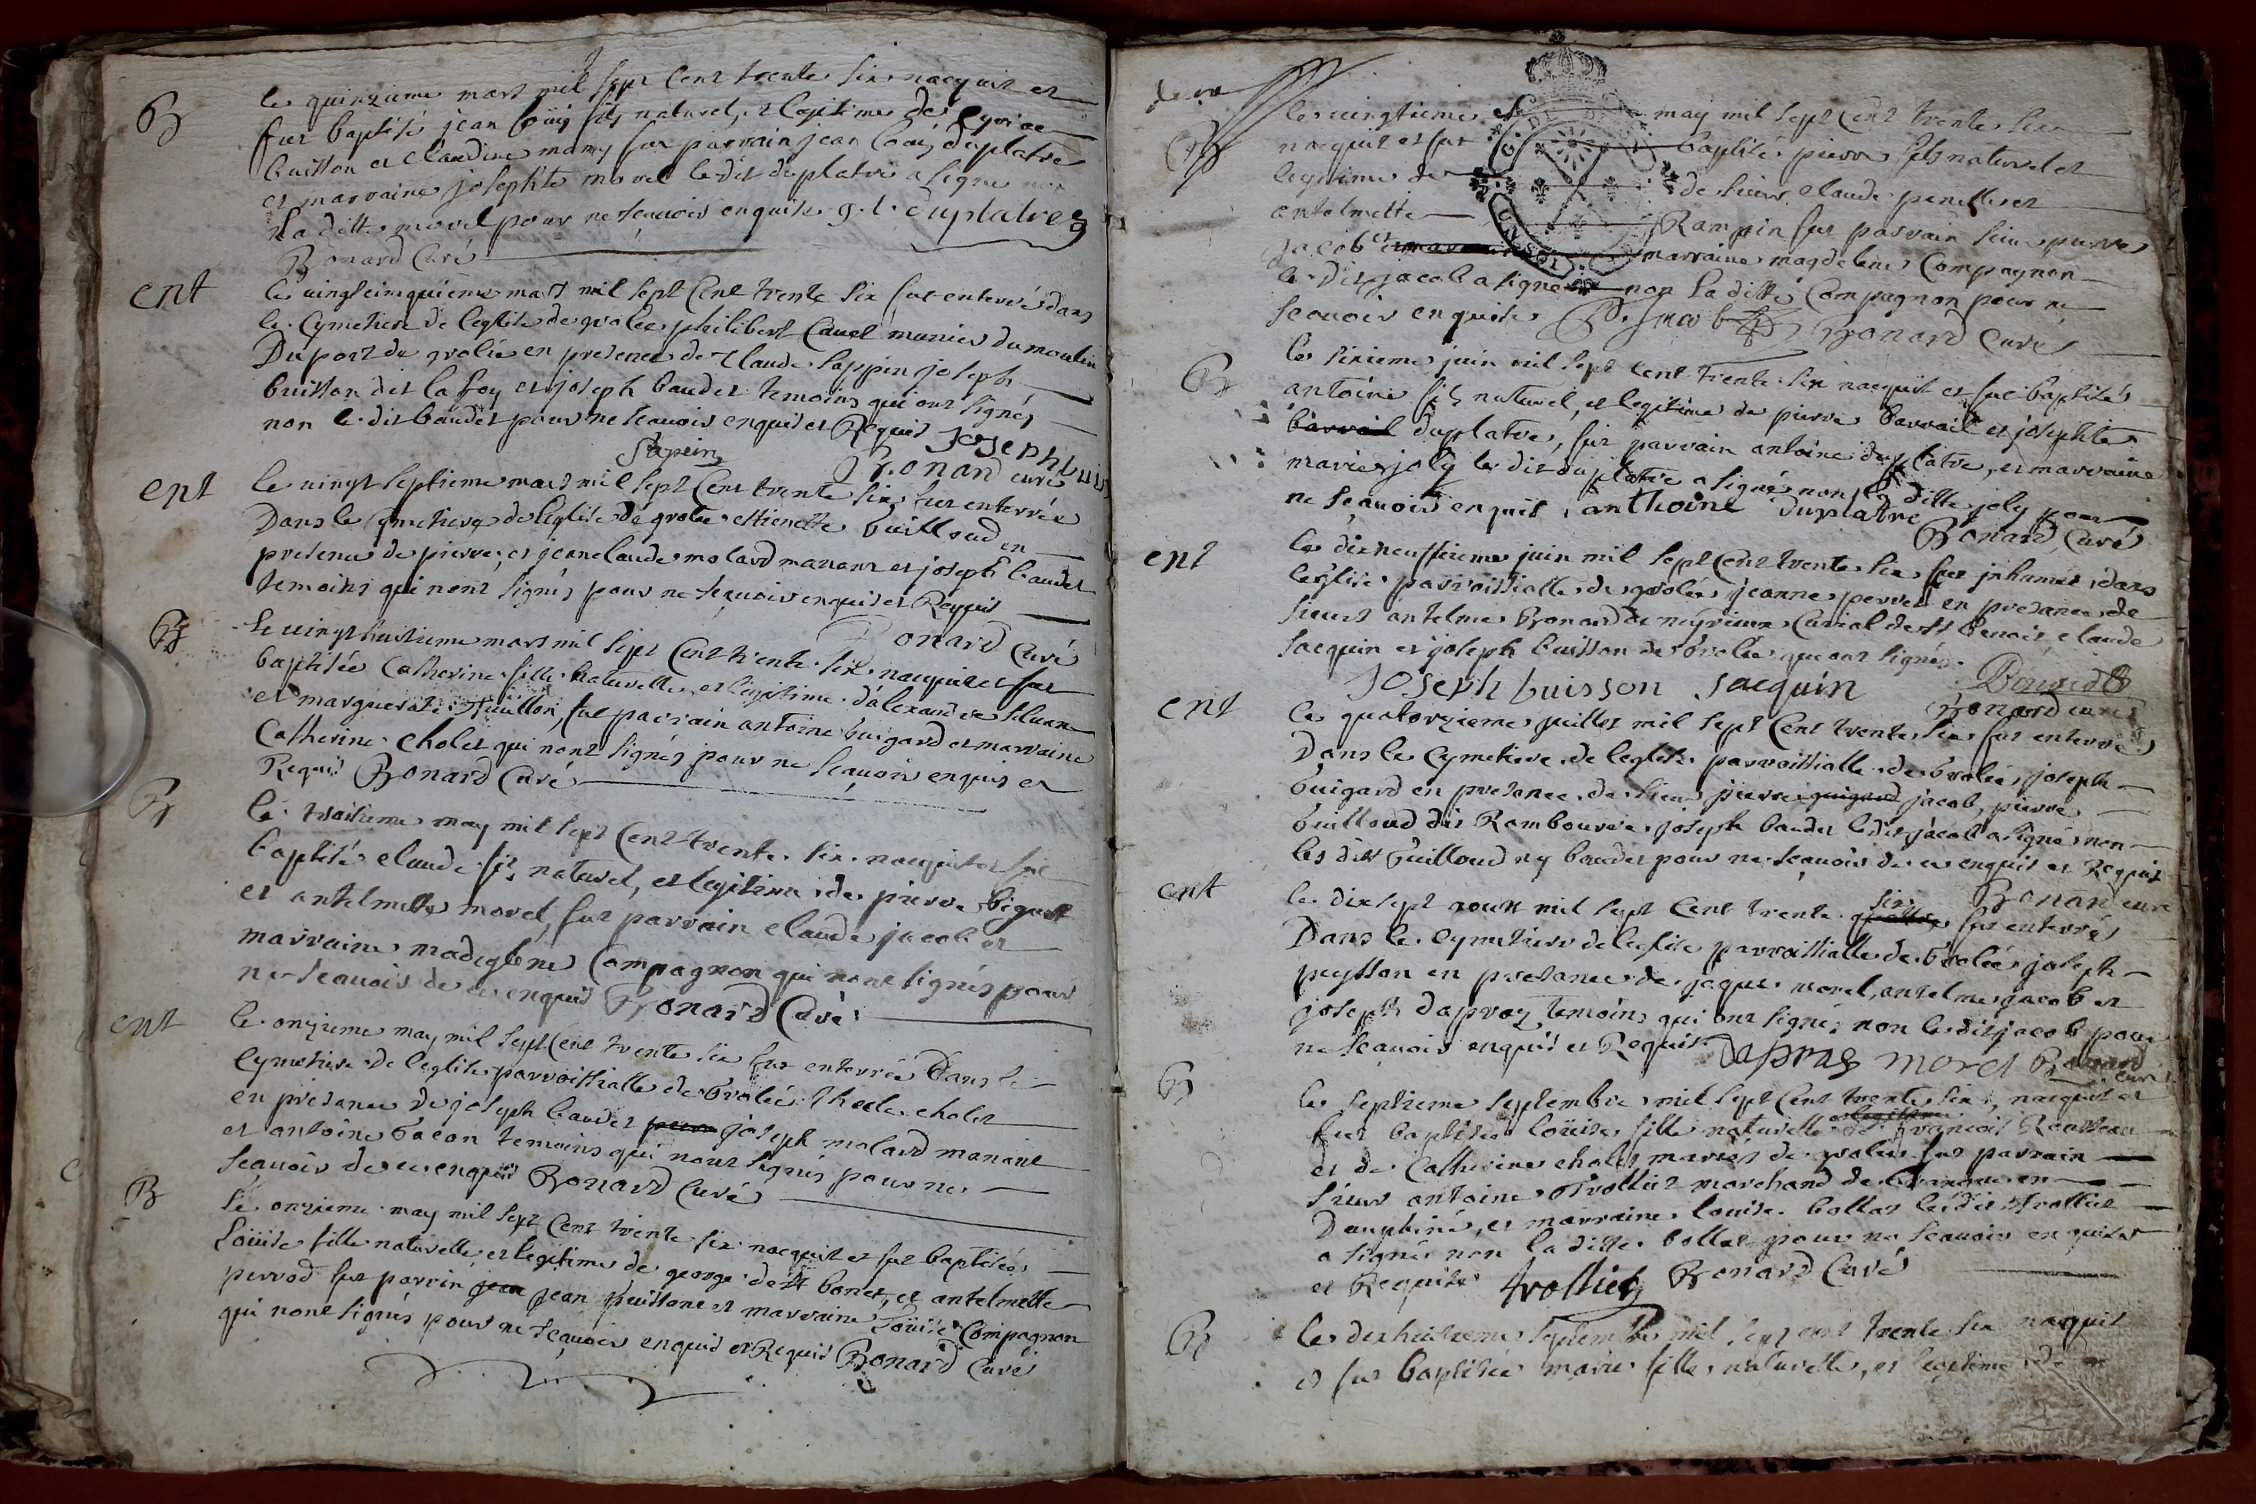 B
le quinzieme mars mil sept cent trente six nacquit et
fut baptisé jean loüis fils naturel, et legitime de Cyriac
buisson et claudine mamy fut parrain jean loüis duplatre
et marraine josephte morel ledit duplatre a signé non
la ditte morel pour ne scauoir enquise g. l. duplatre
Bonard Curé
ent
le uingtcinquieme mars mil sept cent trente six fut enterré dans
le Cymetiere de leglise de grolée philibert Cauel munier du moulin
Du port de grolée en presence de Claude sappin joseph
buisson dit la foy et joseph baudet temoins qui ont signés
non le dit baudet pour ne scauoir enquis et Requis Joseph buis
Sapin Bonard curé
ent
le uingt septieme mars mil sept cent trente six fut enterrée
Dans le Cymetiere de leglise de grolée ettienette builloud en
presence de pierre, et jeanclaude molard manant et joseph baudet
temoins qui nont signés pour ne scauoir enquis et Requis
Bonard Curé
B
le uingt huitieme mars mil sept cent trente six nacquit et fut
baptisée Catherine fille naturelle, et legitime dalexandre Siluan
et marguerite, fut parrain antoine guigard et marraine
Catherine cholet qui nont signés pour ne scauoir enquis et
Requis Bonard Curé
B
le troisieme may mil sept cent trente six nacquit et fut
baptisé claude fils naturel, et legitime de pierre biguet
et antelmette morel, fut parrain claude jacob et
marraine madeglene Compagnon qui nont signés pour
ne scauoir de ce enquis Bonard Curé
ent
le onzieme may mil sept cent trente six fut enterrée Dans le
Cymetiere de leglise parroissialle de Grolée thecle cholet
en presance de joseph baudet joseph molard manant
et antoine bacon temoins qui nont signés pour ne
scauoir de ce enquis Bonard Curé
B
le onzieme may mil sept cent trente six nacquit et fut baptisée
Loüise fille naturelle, et legitime de george de st bonet, et antelmette
perrod fut parrin jean jean puissant et marraine Loüise Compagnon
qui nont signés pour ne scauoir enquis et Requis Bonard Curé
B
le uingtieme may mil sept cent trente six
nacquit et fut baptisé pierre fils naturel et
legitime de de sieur claude penelle et
antelmette Rampin fut parrain sieur pierre
jacob et marraine magdelene Compagnon
le dit jacob a signé non la ditte Compagnon pour ne
scauoir enquise P. Jacob Bonard Curé
B
le sixieme juin mil sept cent trente six nacquit et fut baptisé
antoine fils naturel, et legitime de pierre barrail et josephte
barrail duplatre, fut parrain antoine duplatre, et marraine
marie joly le dit duplatre a signé non la ditte joly pour
ne scauoir enquis anthoine duplatre
Bonard Curé
ent
le dixneufieme juin mil sept cent trente six fut inhumée dans
leglise parroissialle de grolée jeanne perret en presance de
sieurs antelme Bonard de meyrieux Curial de st benoit, claude
Jacquin et joseph buisson de grolée qui ont signés
Joseph buisson Jacquin Bonard
Bonard curé
ent
le quatorzieme juillet mil sept cent trente six fut enterré
Dans le Cymetiere de leglise parroissialle de Grolée joseph
guigard en presance de sieur pierre guigard jacob, pierre
builloud dit Rambourre, joseph baudet ledit jacob a signé non
les dits builloud ny baudet pour ne scauoir de ce enquis et Requis
Bonard curé
ent
le dixsept aoust mil sept cent trente quattre six fut enterré
Dans le Cymetiere de leglise parroissialle de Grolée joseph
peysson en presance de jaques morel, antelme jacob et
joseph dapraz temoins qui ont signés non le dit jacob pour
ne scauoir enquis et Requis Dapraz morel Bonard
curé
B
le septieme septembre mil sept cent trente six, nacquit et
fut baptisée loüise fille naturelle et legitime de francois Rousseau
et de Catherine cholet mariés de grolée fut parrain
sieur antoine trolliet marchand de en
Dauphiné, et marraine louise bollat ledit trolliet
a signé non la ditte bollat pour ne scauoir enquise
et Requise trolliet Bonard Curé
B
le dixhuitieme septembre mil sept cent trente six nacquit
et fut baptisée marie fille naturelle, et legitime de